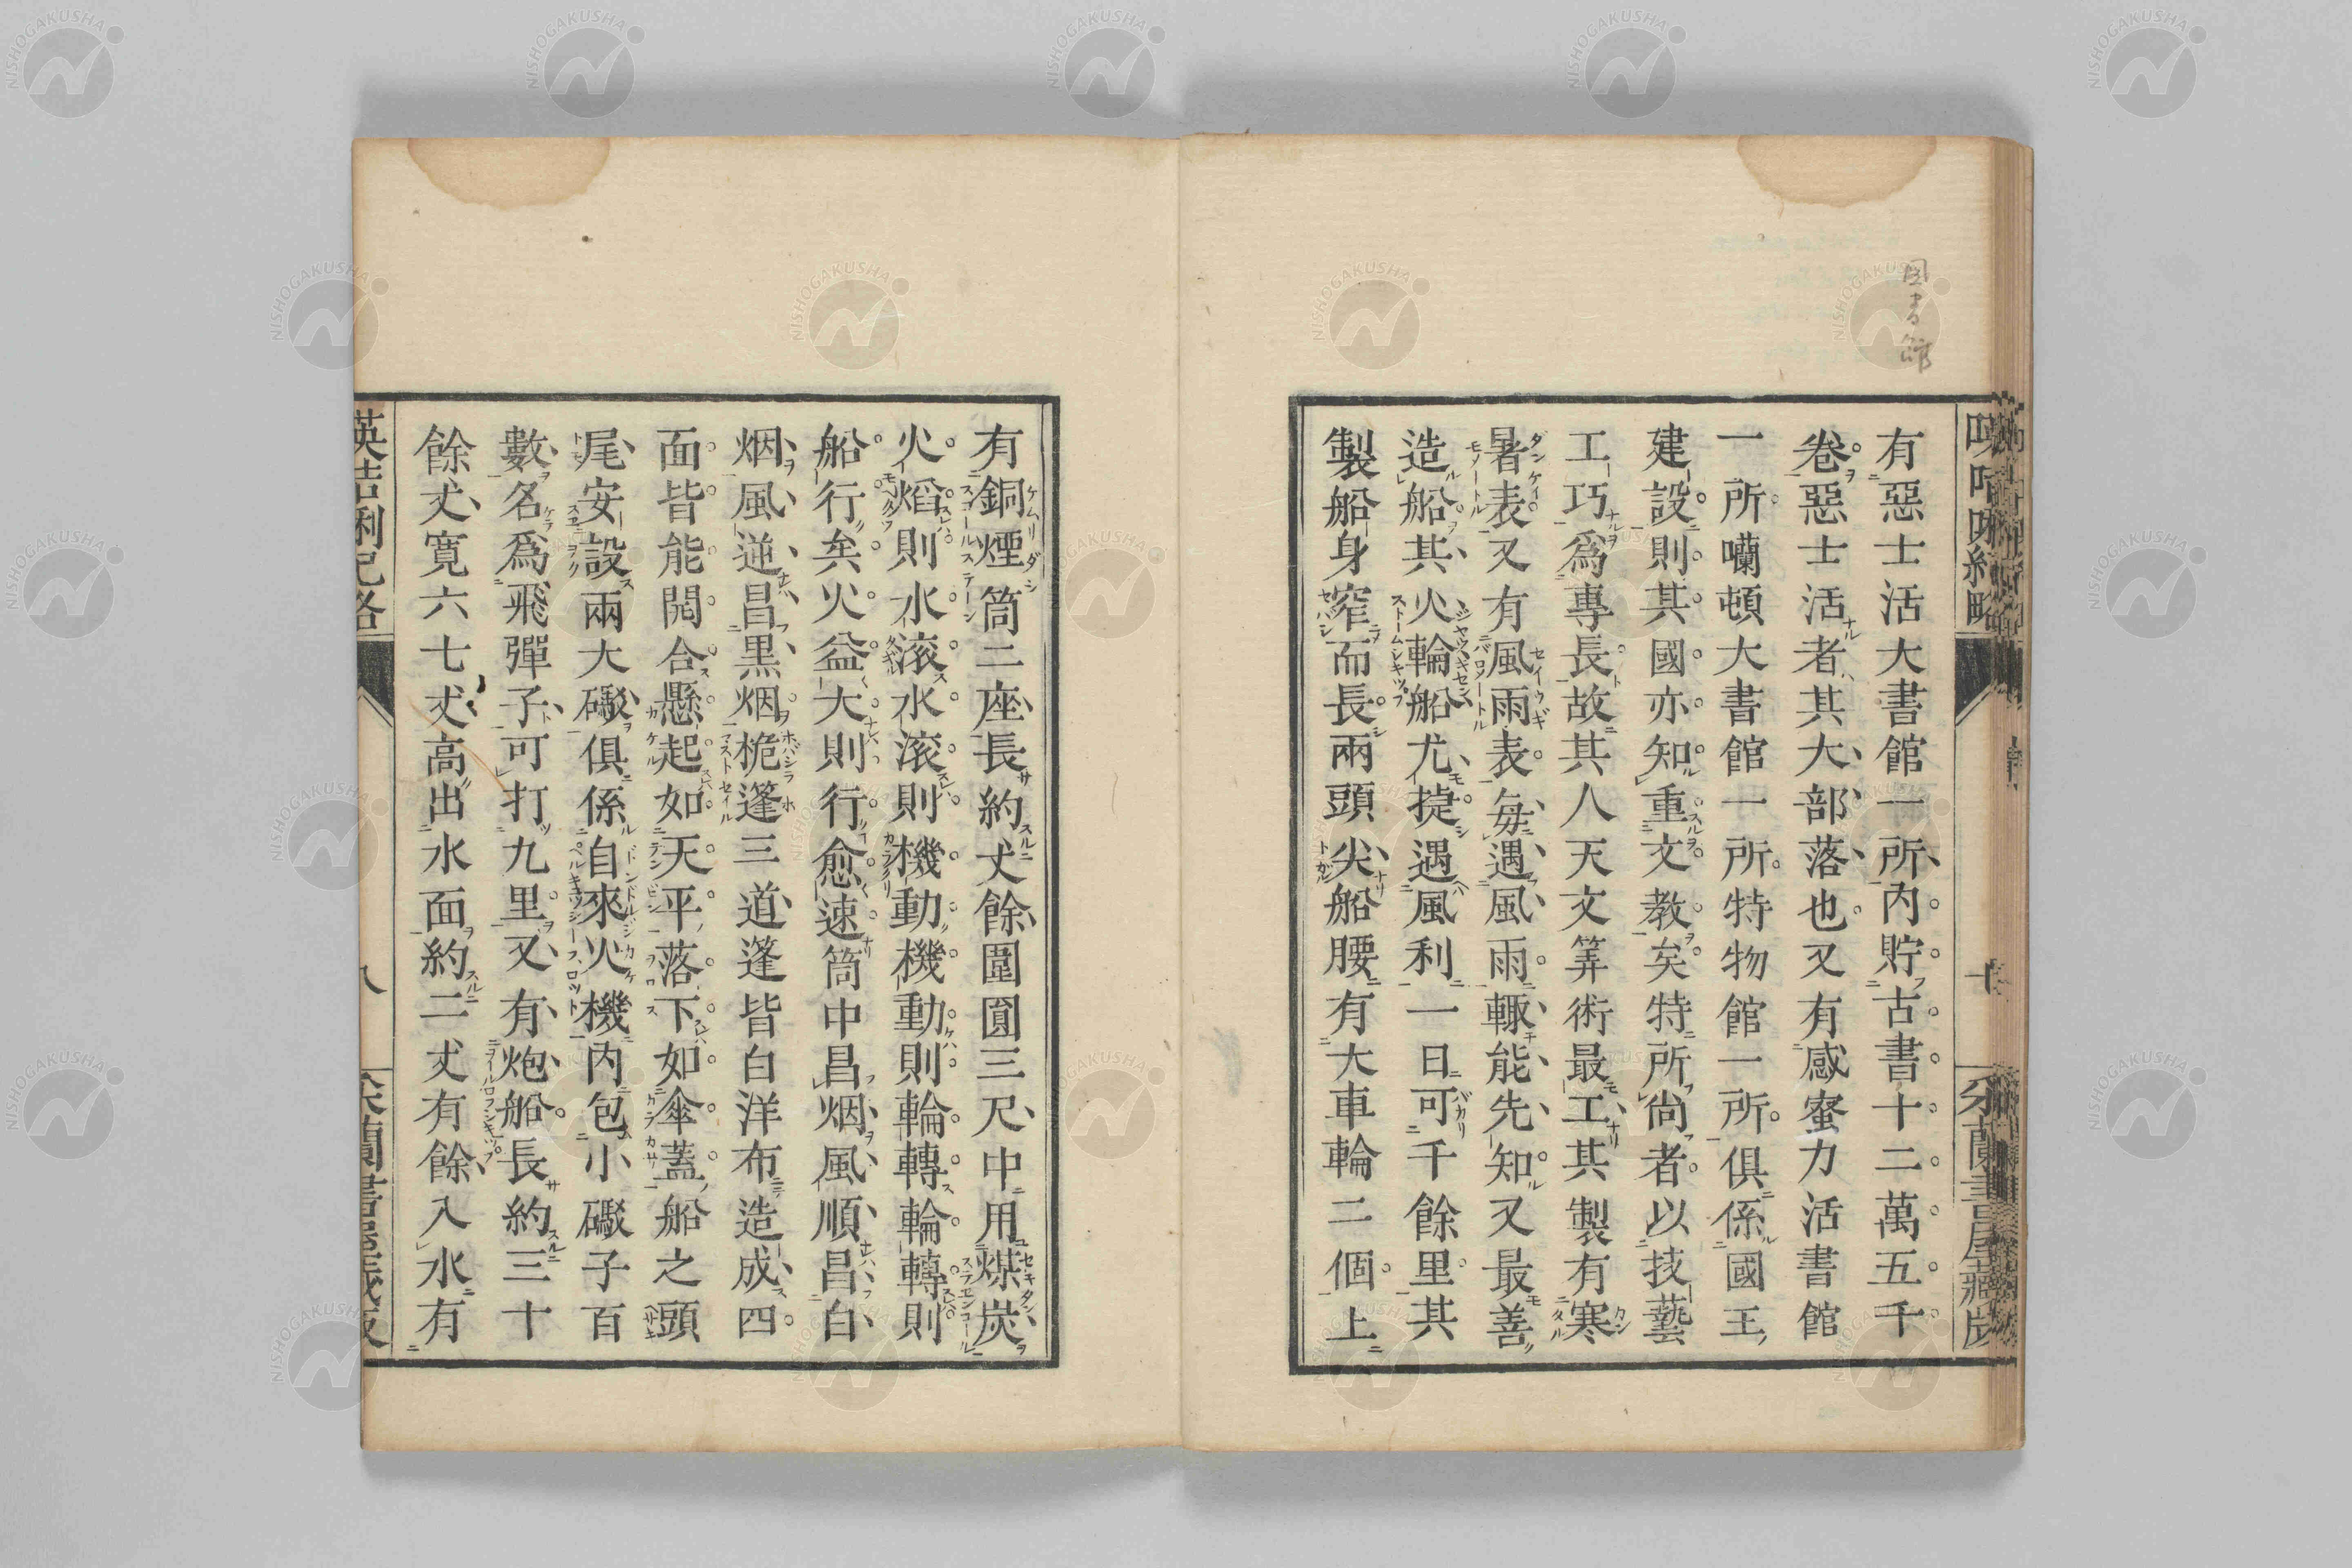 圖書館
有惡士活大書館一所内貯古書十二萬五千
卷惡士活者其大部落也又有感蜜力活書館
一所囒頓大書館一所特物館一所俱係國王
建設則其國亦知重文教矣特所尙者以技藝
工巧爲專長故其人天文筭術最工其製有寒
暑表又有風雨表毎遇風雨輙能先知又最善
造船其火輪船尤㨗遇風利一日可千餘里其
製船身窄而長兩頭尖船腰有大車輪二個上
有銅煙筒二座長約丈餘圍圓三尺中用煤炭
火熖則水滚水滚則機動機動則輪轉輪轉則
船行矣火益大則行愈速筒中昌烟風順昌白
烟風逆昌黒烟桅篷三道篷皆白洋布造成四
面皆能開合懸起如天平落下如傘蓋船之頭
尾安設兩大礮俱係自來火機内包小礮子百
數名爲飛彈子可打九里又有炮船長約三十
餘丈寛六七丈高出水面約二丈有餘入水有
英吉利紀略
八
NISHOGAKUSHA